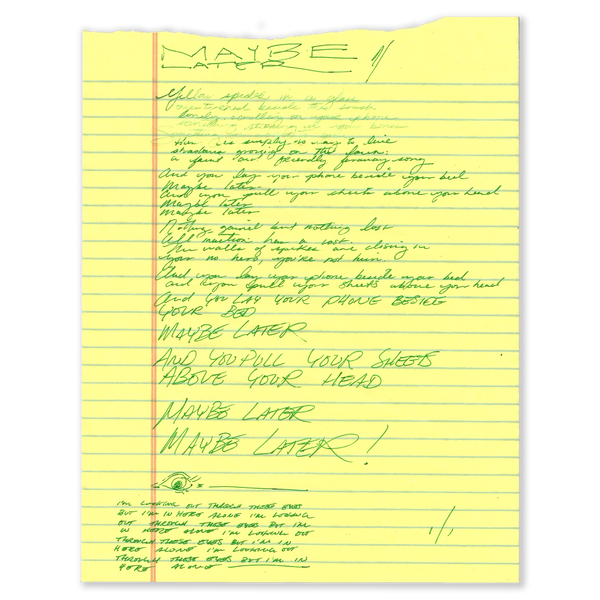 MAYBE
LATER
Yellow spider in a glass
beside the couch
Lonely scrolling on your phone
in your bones
There is simply no way to live
growing on the lawn:
a faint and friendly faraway song
And you lay your phone beside your bed
Maybe later
And you pull your sheets above your head
Maybe later
Maybe later
Nothing gained but nothing lost
All inaction has a cost.
The walls of are closing in
You're no hero, you're not him.
And you lay your phone beside your bed
And you pull your sheets above your head
AND YOU LAY YOUR PHONE BESIDE
YOUR BED
MAYBE LATER
AND YOU PULL YOUR SHEETS
ABOVE YOUR HEAD
MAYBE LATER
MAYBE LATER!
I'M LOOKING OUT THROUGH THESE EYES
BUT I'M IN HERE ALONE I'M LOOKING
OUT THROUGH THESE EYES BUT I'M
IN HERE ALONE I'M LOOKING OUT
THROUGH THESE EYES BUT I'M IN
HERE ALONE I'M LOOKING OUT
THROUGH THESE EYES BUT I'M IN
HERE ALONE
1/1